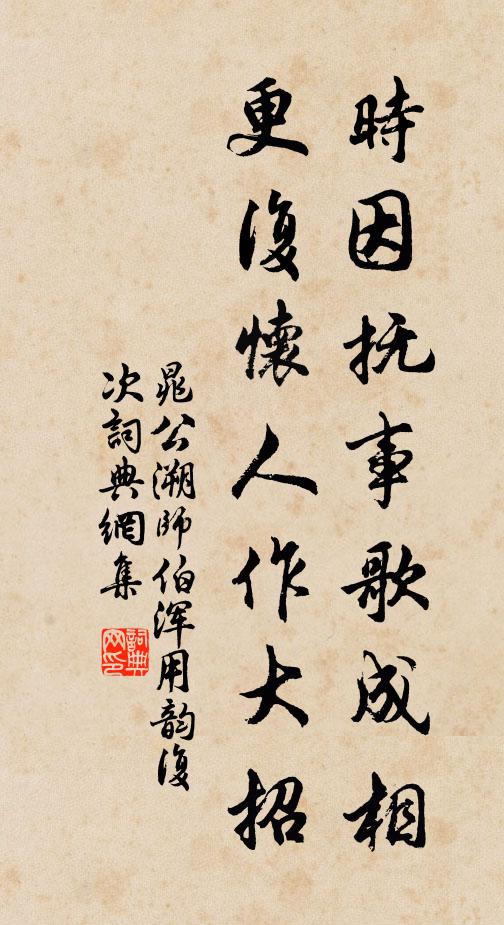 時因抚事歌成相
更復懷人作大招
晁公溯師伯浑用韵復
次詞典網集
詞典网印